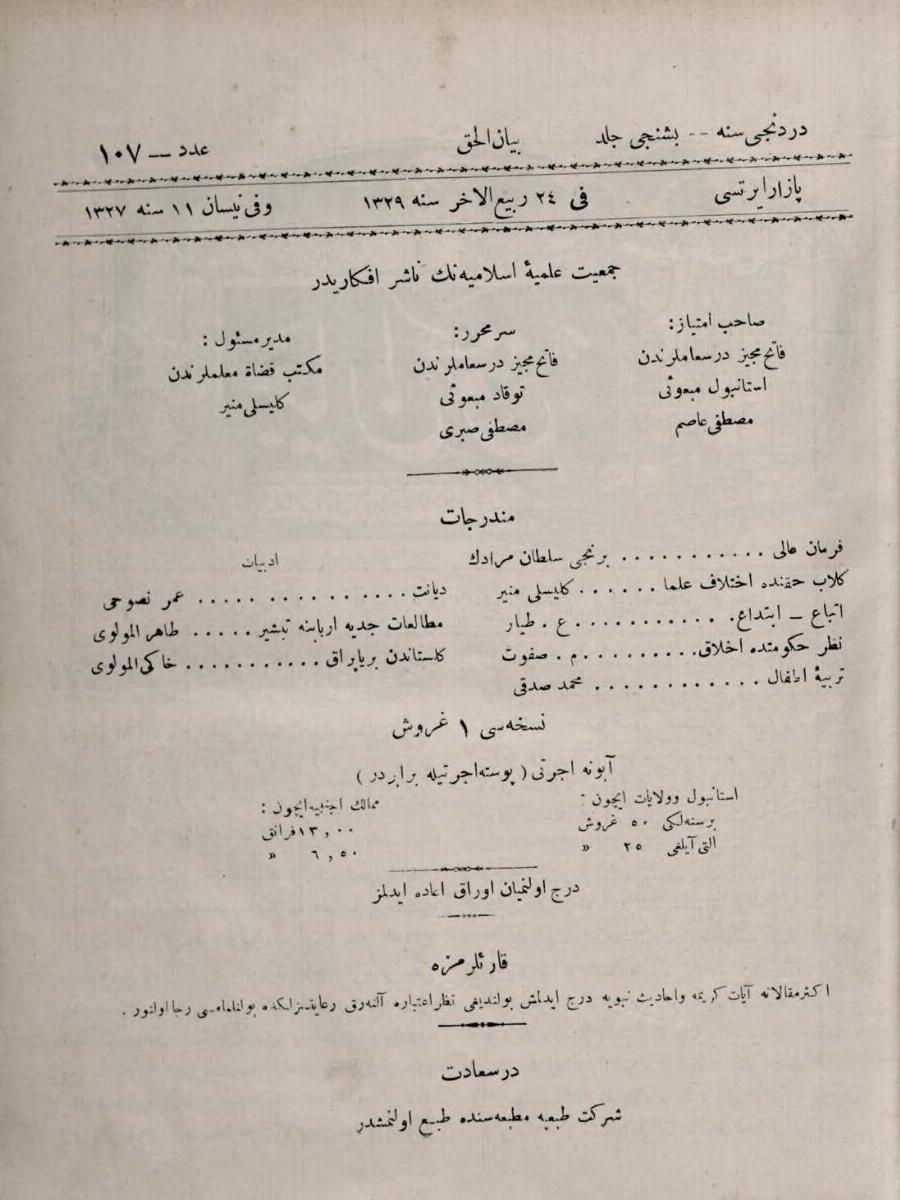 دردنجی سنه -- بشنجی جلد بیان الحق عدد — ۱۰۷
پازار ایرتسی فی ۲٤ ربیع الاخر سنه ۱۳۲۹ وفی نیسان ۱۱ سنه ۱۳۲۷
جمعیت علمیۀ اسلامیه نك ناشر افكاریدر
صاحب امتیاز :
فاتح مجیز درسعاملرندن
استانبول مبعوثی
مصطفی عاصم
سر محرر :
فاتح مجیز درسعاملرندن
توقاد مبعوثی
مصطفی صبری
مدیر مسئول :
مكتب قضاة معلملرندن
كلیسلی منیر
مندرجات
فرمان عالی . . . . . . . . . . . برنجی سلطان مرادك
كلاب حقنده اختلاف علما . . . . . . كلیسلی منیر
اتباع — ابتداع . . . . . . . . . . . ع . طیار
نظر حكومتده اخلاق . . . . . . . . . م . صفوت
تربیۀ اطفال . . . . . . . . . . . . محمد صدقی
ادبیات
دیانت . . . . . . . . . . . . . . عمر نصوحی
مطالعات جدیه اربابنه تبشیر . . . . . طاهر المولوی
كلستاندن بر یاپراق . . . . . . . . . . . خاكی المولوی
نسخه سی ۱ غروش
آبونه اجرتی ( پوسته اجرتیله برابردر )
استانبول وولایات ایچون :
برسنه لكی ٥٠ غروش
التی آیلغی ٢٥ »
ممالك اجنبیه ایچون :
۱۳,۰۰ فرانق
٦,٥٠ »
درج اولنمیان اوراق اعاده ایدلمز
قارئلرمزه
اكثر مقالاته آیات كریمه واحادیث نبویه درج ایدلمش بولندیغی نظر اعتباره آلنه رق رعایتسزلكده بولنلمامسی رجا اولنور .
درسعادت
شركت طبعیه مطبعه سنده طبع اولنمشدر